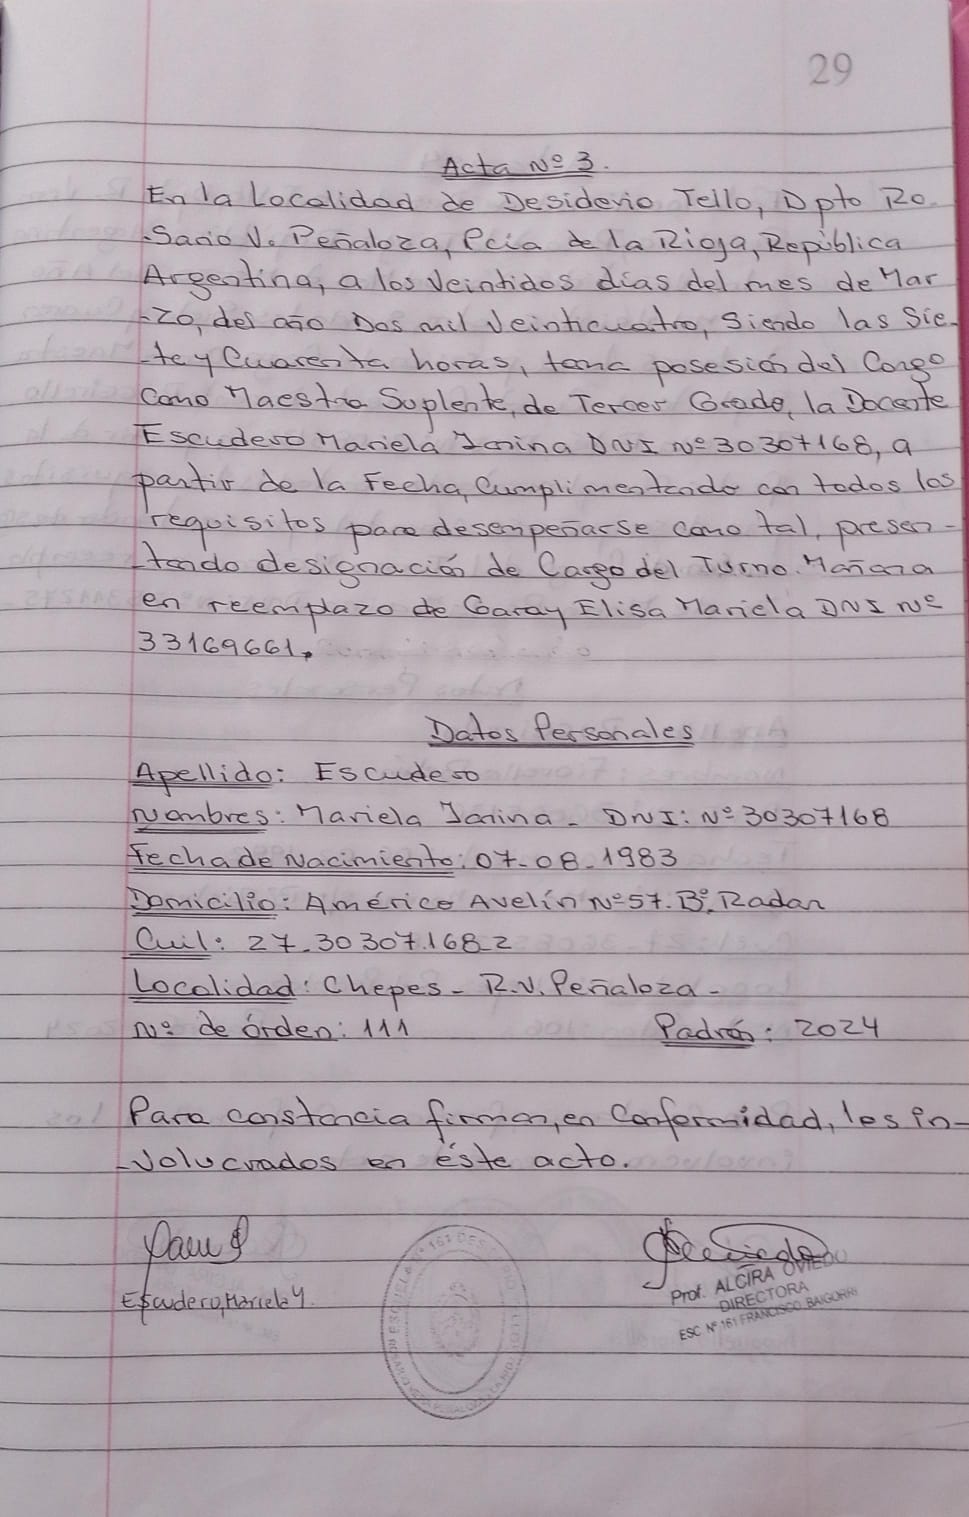 29
Acta Nº 3.
En la Localidad de Desiderio Tello, Dpto Ro
-Sario V. Peñaloza, Pcia de la Rioja, República
Argentina, a los Veintidos días del mes de Mar
-zo, del año Dos mil Veinticuatro, Siendo las Sie-
te y Cuarenta horas, toma posesión del Cargo
Como Maestra Suplente, de Tercer Grado, la Docente
Escudero Mariela Janina DNI Nº 30307168, a
partir de la Fecha, Cumplimentando con todos los
requisitos para desempeñarse como tal, presen-
tando designación de Cargo del Turno Mañana
en reemplazo de Garay Elisa Mariela DNI Nº
33169661.
Datos Personales
Apellido: Escudero
Nombres: Mariela Janina - DNI: Nº 30307168
Fecha de Nacimiento: 07-08-1983
Domicilio: Américo Avelín Nº 57. Bº. Radar
Cuil: 27.30307.168-2
Localidad: Chepes - R.V. Peñaloza -
Nº de órden: 111 Padrón: 2024
Para constancia firman, en Conformidad, los in-
-volucrados en éste acto.
Escudero, Mariela Y.
Prof. ALCIRA OVIEDO
DIRECTORA
ESC Nº 161 FRANCISCO BAIGORRI